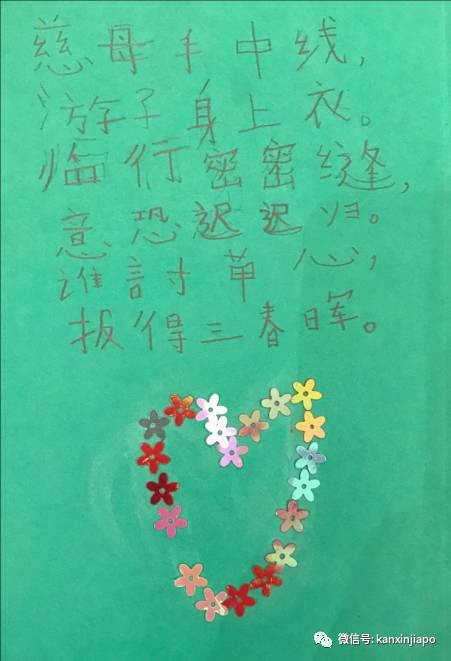 慈母手中线，
游子身上衣。
临行密密缝，
意恐遲遲归。
谁討草心，
扳得三春晖。
微信号: kanxinjiapo